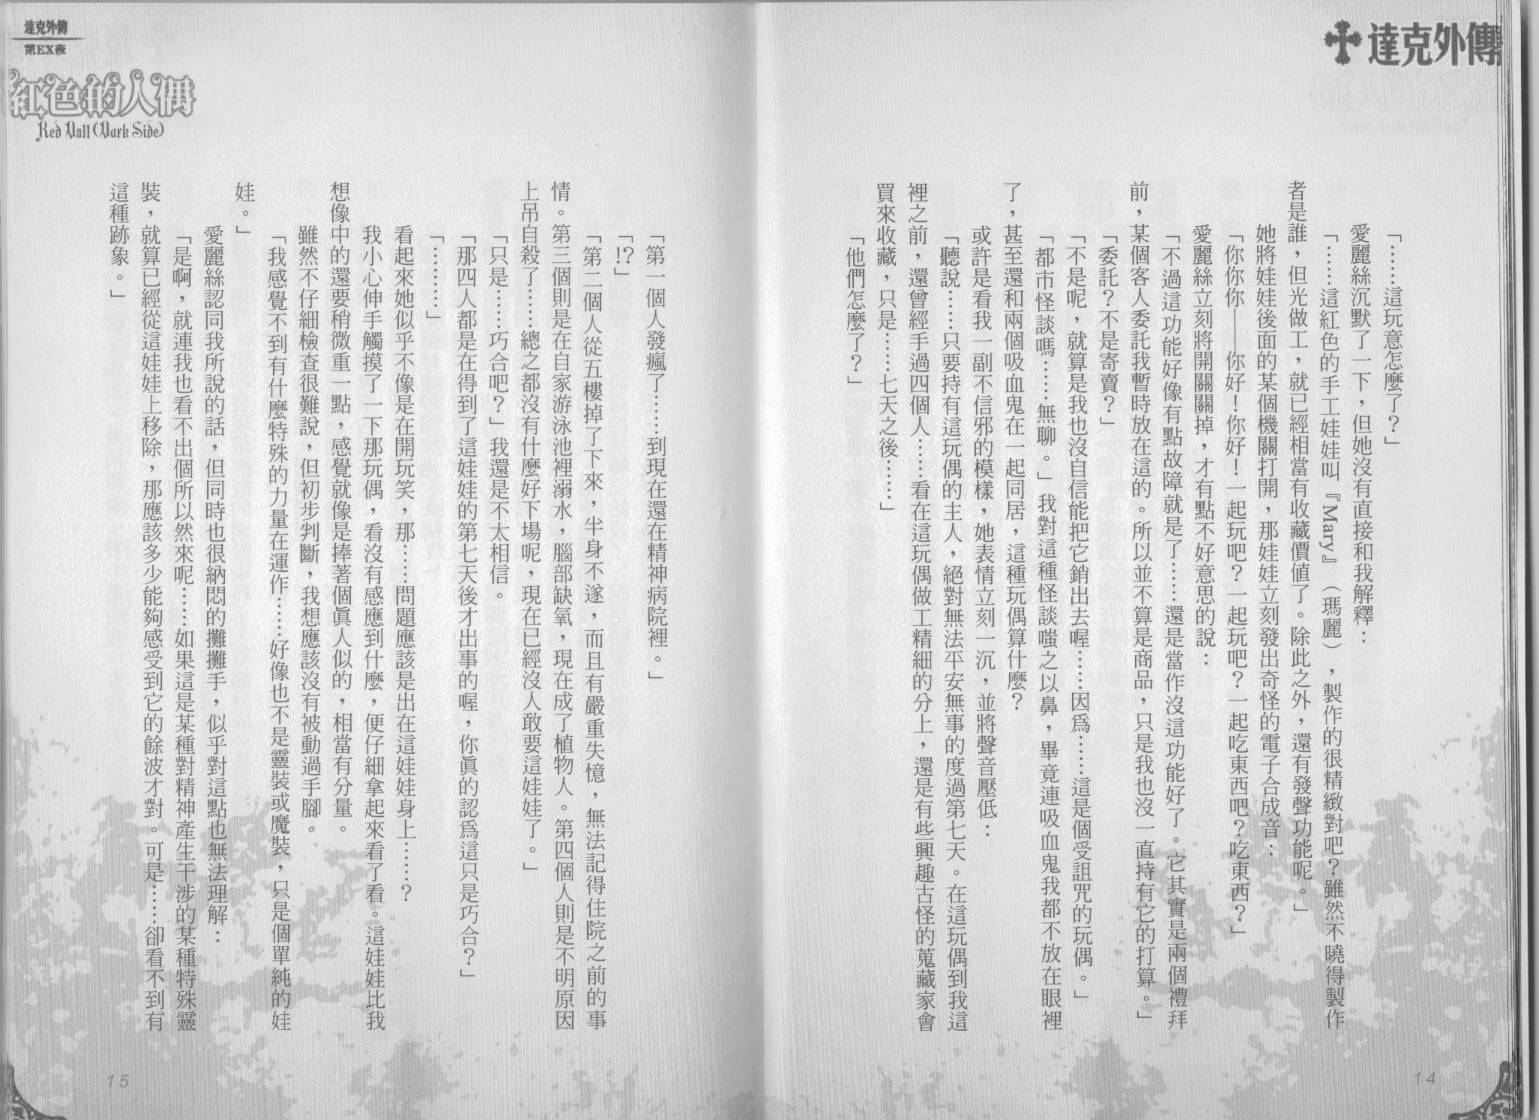 達克外傳
「……這玩意怎麼了？」
愛麗絲沉默了一下，但她沒有直接和我解釋：
「……這紅色的手工娃娃叫『Mary』（瑪麗），製作的很精緻對吧？雖然不曉得製作
者是誰，但光做工，就已經相當有收藏價值了。除此之外，還有發聲功能呢。」
她將娃娃後面的某個機關打開，那娃娃立刻發出奇怪的電子合成音：
「你你你——你好！你好！一起玩吧？一起玩吧？一起吃東西吧？吃東西？」
愛麗絲立刻將開關關掉，才有點不好意思的說：
「不過這功能好像有點故障就是了……還是當作沒這功能好了。它其實是兩個禮拜
前，某個客人委託我暫時放在這的。所以並不算是商品，只是我也沒一直持有它的打算。」
「委託？不是寄賣？」
「不是呢，就算是我也沒自信能把它銷出去喔……因為……這是個受詛咒的玩偶。」
「都市怪談嗎……無聊。」我對這種怪談嗤之以鼻，畢竟連吸血鬼我都不放在眼裡
了，甚至還和兩個吸血鬼在一起同居，這種玩偶算什麼？
或許是看我一副不信邪的模樣，她表情立刻一沉，並將聲音壓低：
「聽說……只要持有這玩偶的主人，絕對無法平安無事的度過第七天。在這玩偶到我這
裡之前，還曾經手過四個人……看在這玩偶做工精細的分上，還是有些興趣古怪的蒐藏家會
買來收藏，只是……七天之後……」
「他們怎麼了？」
14
達克外傳
第EX夜
紅色的人偶
Red Doll (Dark Side)
「第一個人發瘋了……到現在還在精神病院裡。」
「!?」
「第二個人從五樓掉了下來，半身不遂，而且有嚴重失憶，無法記得住院之前的事
情。第三個則是在自家游泳池裡溺水，腦部缺氧，現在成了植物人。第四個人則是不明原因
上吊自殺了……總之都沒有什麼好下場呢，現在已經沒人敢要這娃娃了。」
「只是……巧合吧？」我還是不太相信。
「那四人都是在得到了這娃娃的第七天後才出事的喔，你真的認為這只是巧合？」
「…………」
看起來她似乎不像是在開玩笑，那……問題應該是出在這娃娃身上……？
我小心伸手觸摸了一下那玩偶，看沒有感應到什麼，便仔細拿起來看了看。這娃娃比我
想像中的還要稍微重一點，感覺就像是捧著個真人似的，相當有分量。
雖然不仔細檢查很難說，但初步判斷，我想應該沒有被動過手腳。
「我感覺不到有什麼特殊的力量在運作……好像也不是靈裝或魔裝，只是個單純的娃
娃。」
愛麗絲認同我所說的話，但同時也很納悶的攤攤手，似乎對這點也無法理解：
「是啊，就連我也看不出個所以然來呢……如果這是某種對精神產生干涉的某種特殊靈
裝，就算已經從這娃娃上移除，那應該多少能夠感受到它的餘波才對。可是……卻看不到有
這種跡象。」
15